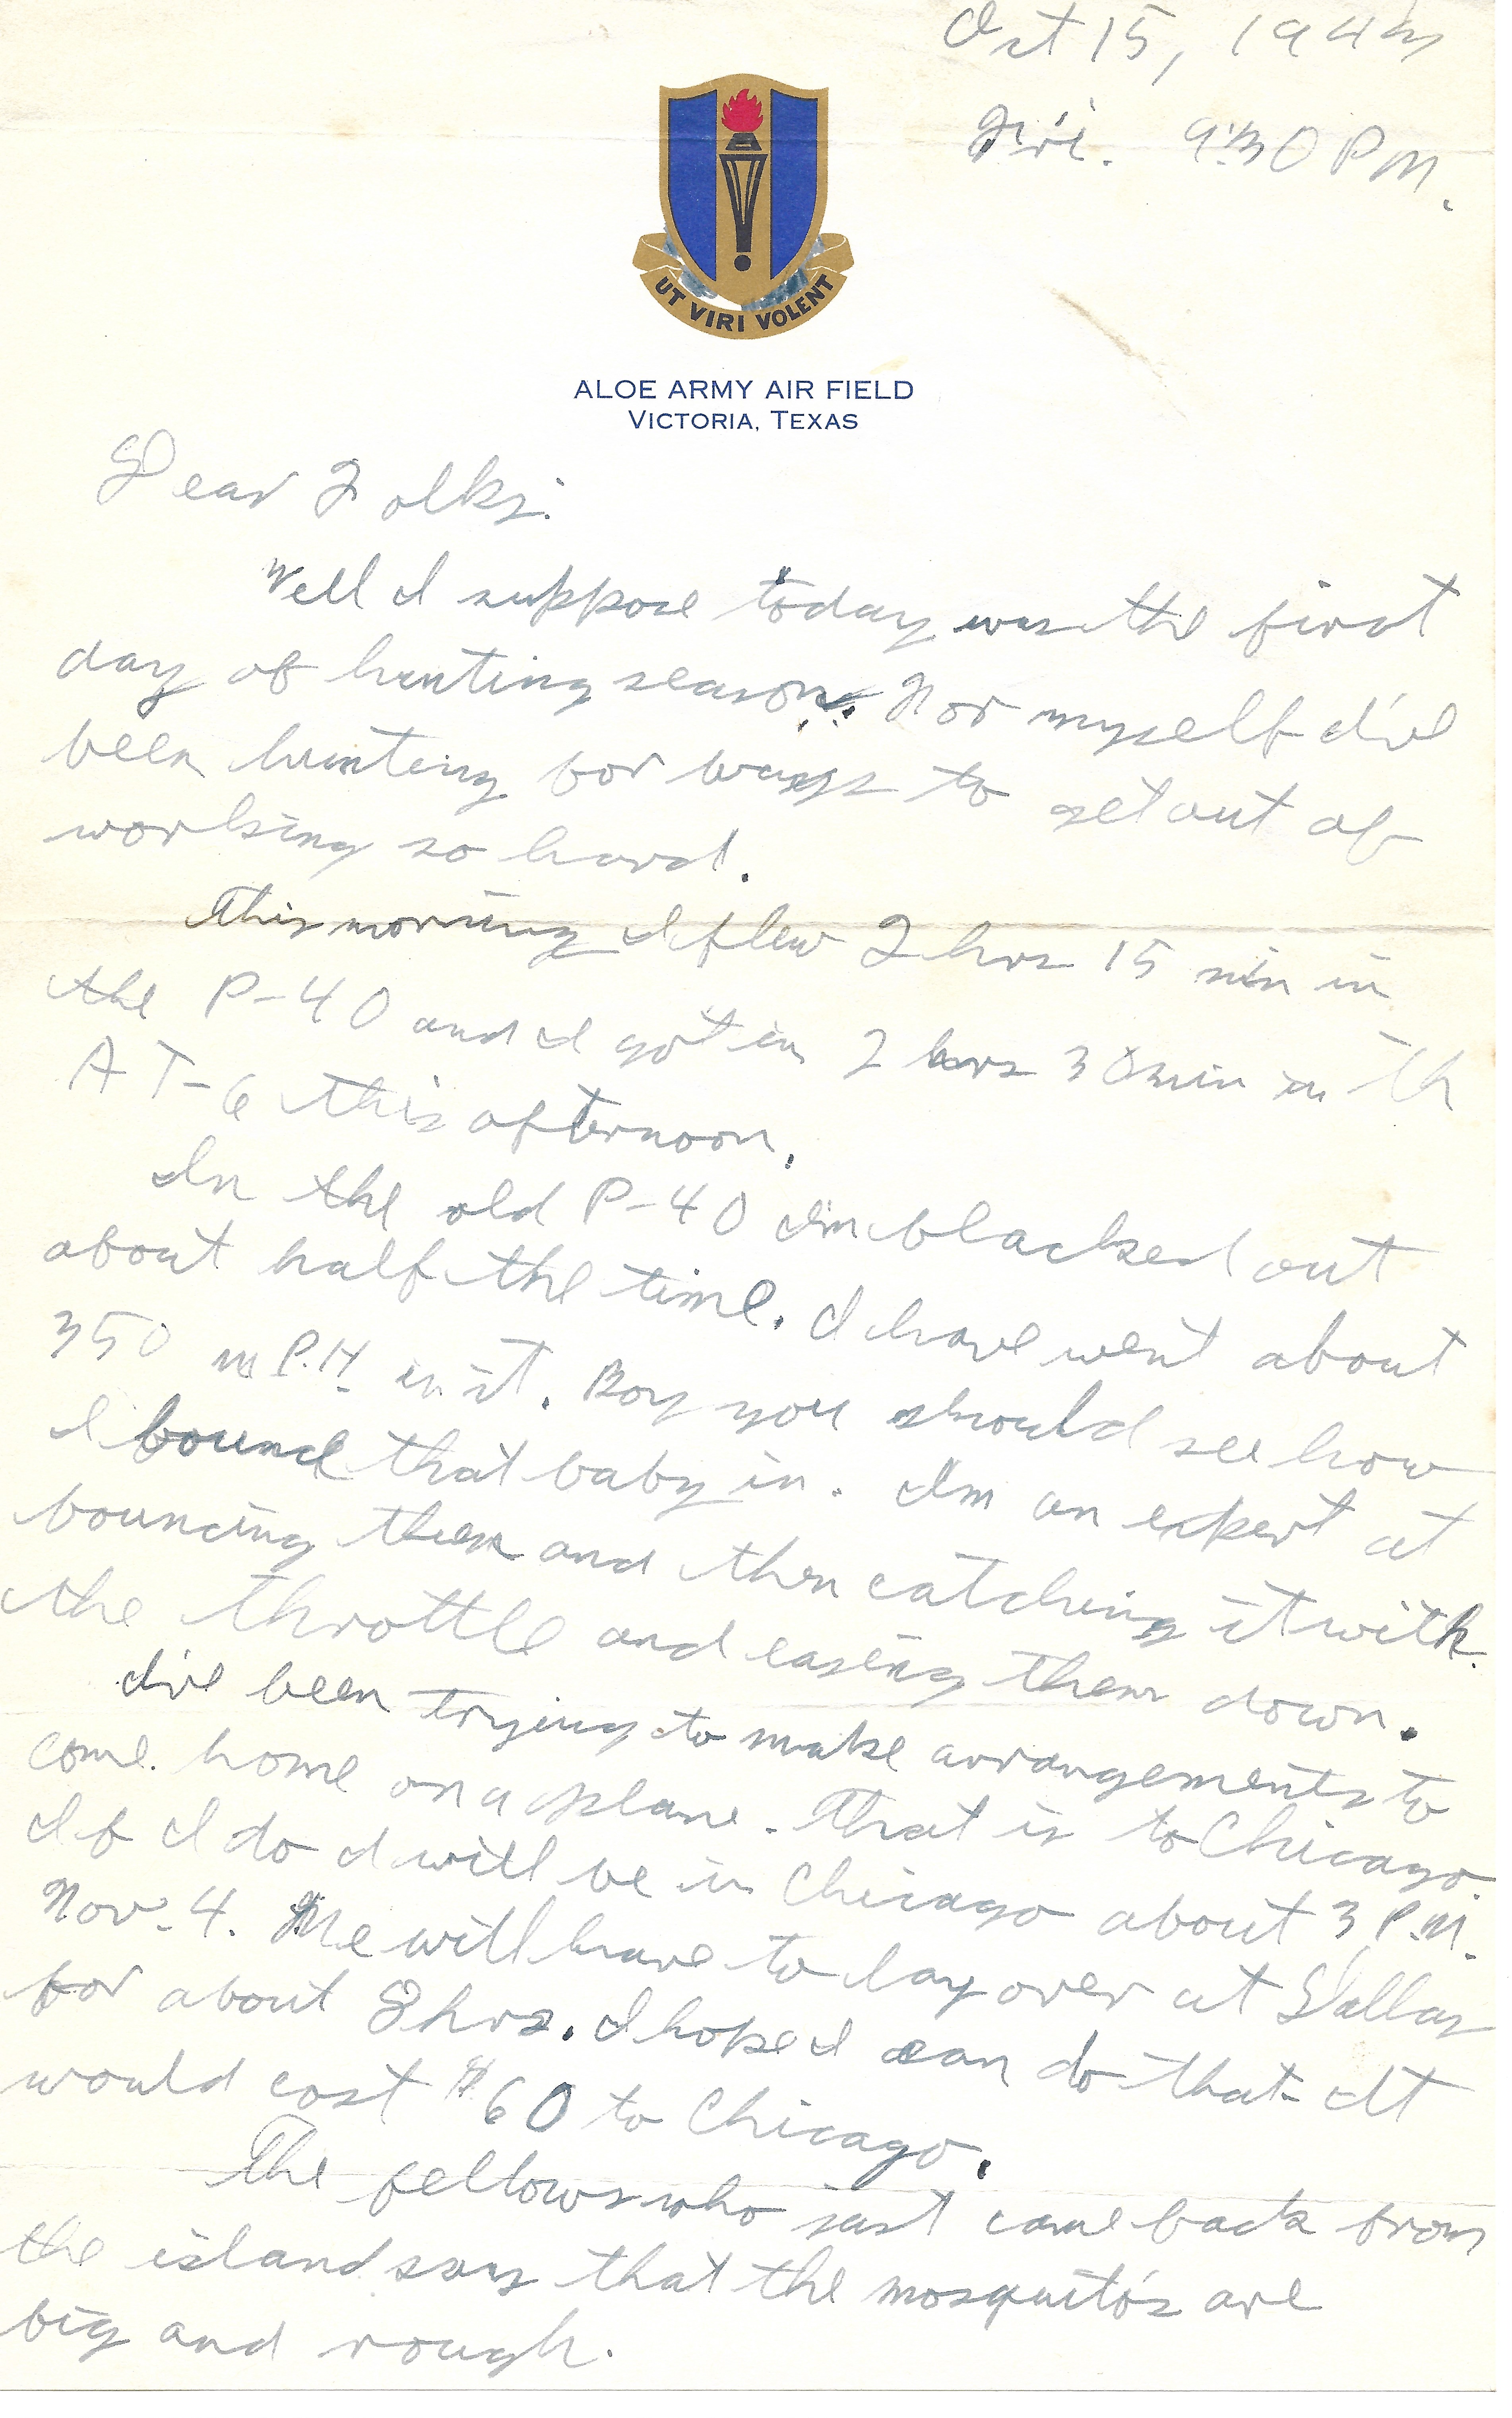 Oct 15, 1943
Fri. 9:30 P.M.
UT VIRI VOLENT
ALOE ARMY AIR FIELD
VICTORIA, TEXAS
Dear Folks:
Well I suppose today was the first
day of hunting season. For myself I've
been hunting for ways to get out of
working so hard.
This morning I flew 2 hrs 15 min in
the P-40 and I got in 2 hrs 30 min in th
AT-6 this afternoon.
In the old P-40 I'm blacked out
about half the time. I have went about
350 M.P.H. in it. Boy you should see how
I bound that baby in. I'm an expert at
bouncing them and then catching it with
the throttle and easing them down.
I've been trying to make arrangements to
come home on a plane. That is to Chicago.
If I do I will be in Chicago about 3 P.M.
Nov. 4. We will have to lay over at Dallas
for about 8 hrs. I hope I can do that. It
would cost $60 to Chicago.
The fellows who just came back from
the island say that the mosquito's are
big and rough.